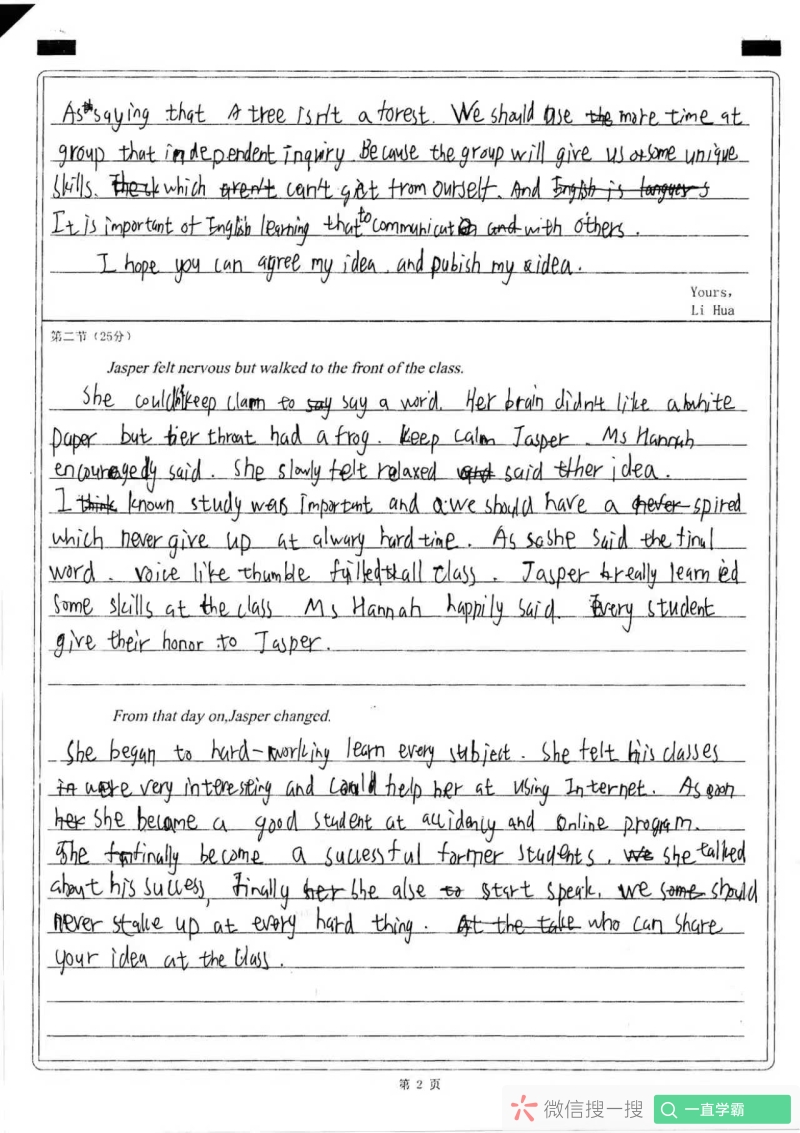 As saying that A tree isn't a forest. We should use more time at
group that independent inquiry. Because the group will give us some unique
skills. which can't get from ourself. And
It is important of English learning that to communication with others.
I hope you can agree my idea and pubish my idea.
Yours,
Li Hua
第二节(25分)
Jasper felt nervous but walked to the front of the class.
She could keep clam to say a word. Her brain didn't like a white
paper but her throat had a frog. keep calm Jasper. Ms Hannah
encouragedy said. She slowly felt relaxed said her idea.
I known study was important and we should have a spired
which never give up at alwary hard time. As she said the final
word. voice like thumble filled all class. Jasper really learned
some skills at the class Ms Hannah happily said. Every student
give their honor to Jasper.
From that day on,Jasper changed.
She began to hard-working learn every subject. She felt his classes
were very interesting and could help her at using Internet. As soon
She became a good student at accidency and online program.
She finally become a successful former students. she talked
about his success, finally She alse start speak. we should
never stake up at every hard thing. who can share
your idea at the class.
第 2 页
微信搜一搜
一直学霸